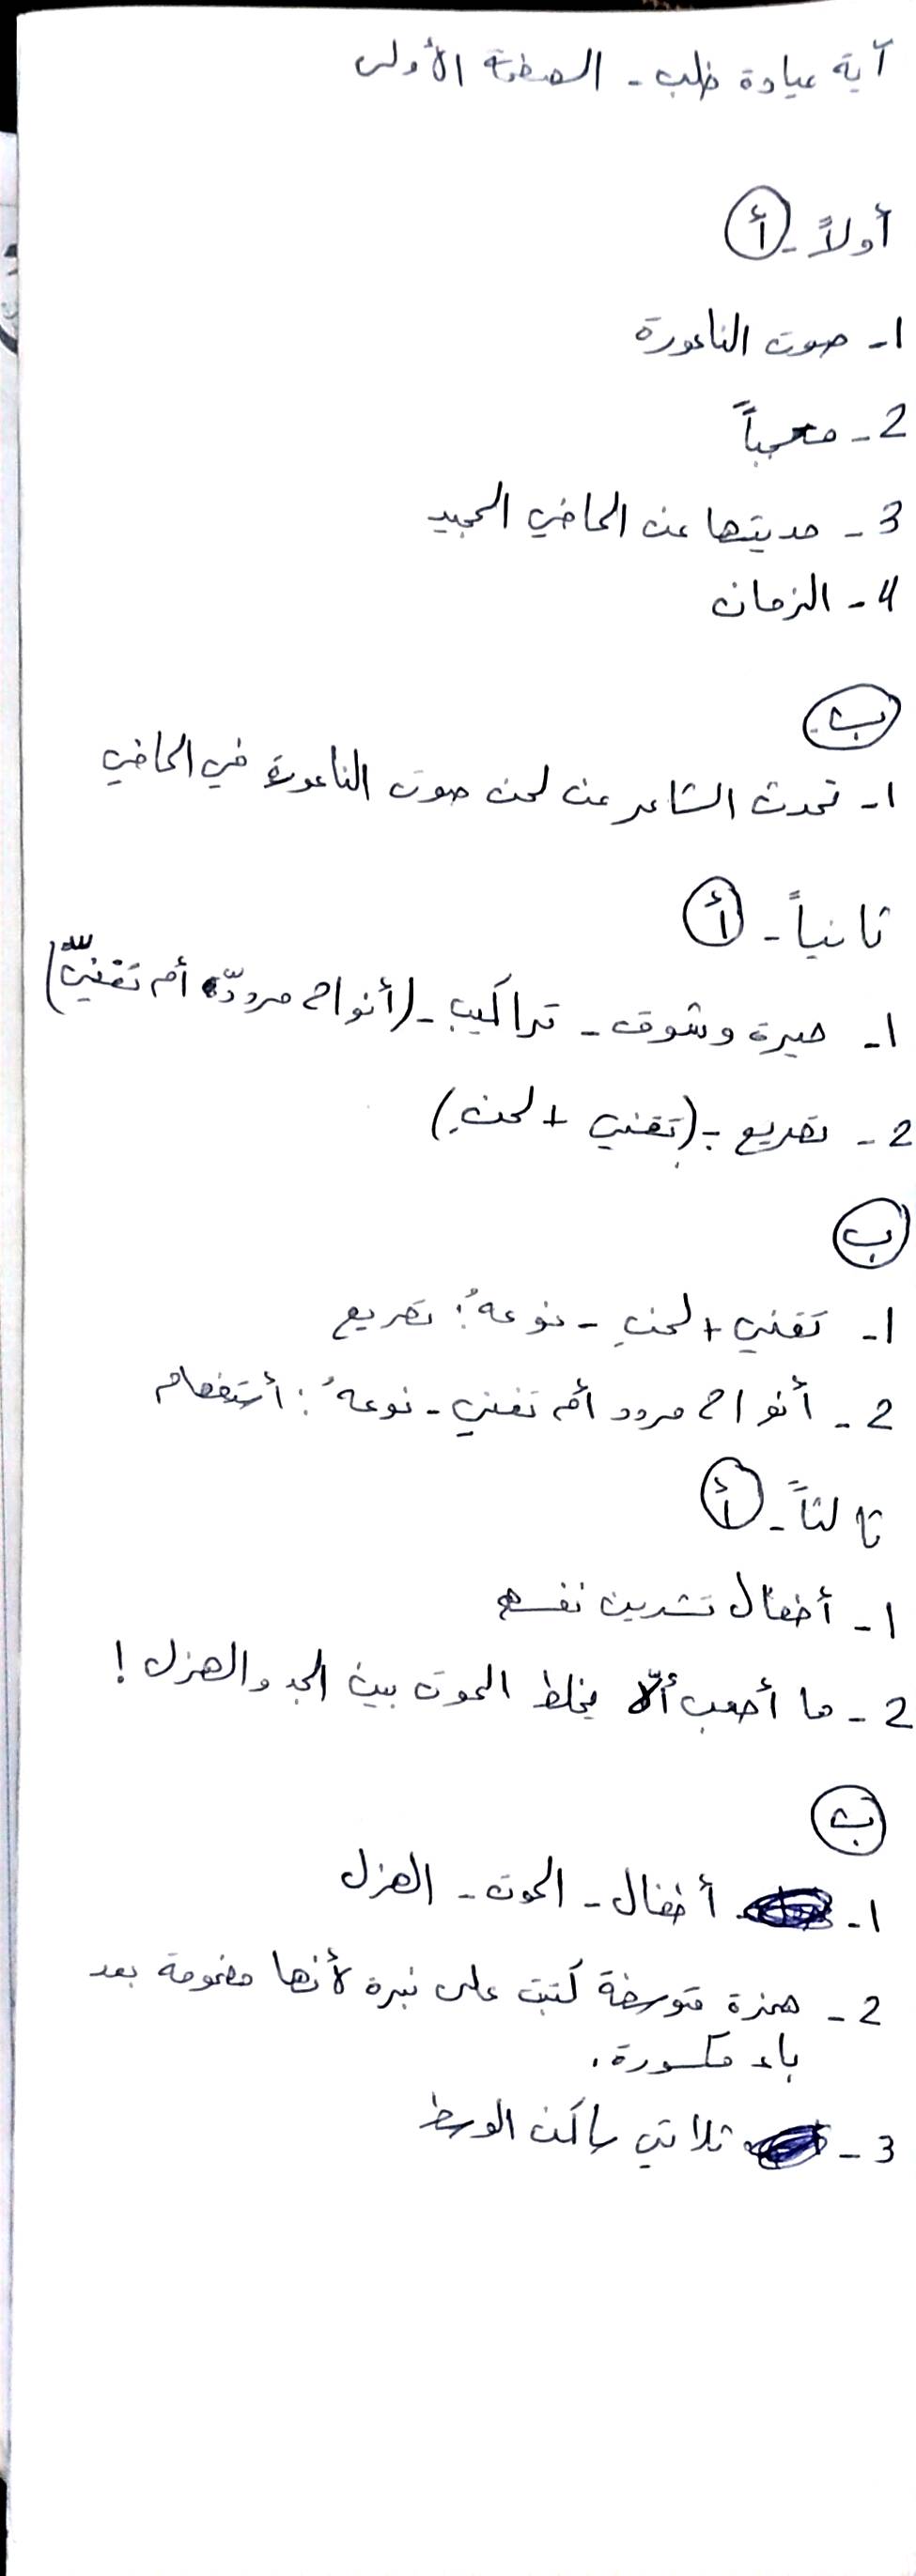 آية عيادة ظلب - الصفحة الأولى
أولاً - أ
1- صوت الناعورة
2- معجباً
3- حديثها عن الماضي المجيد
4- الزمان
ب
1- تحدث الشاعر عن لحن صوت الناعورة في الماضي
ثانياً - أ
1- حيرة وشوق - تراكيب - (أنواح مردّد أم تغنيّ)
2- تصريع - (تغني + لحنِ)
ب
1- تغني + لحنِ - نوعهُ: تصريع
2- أنواح مردد أم تغني - نوعهُ: أستفهام
ثالثاً - أ
1- أطفال تشرين نفسه
2- ما أصعب ألّا يخلط الموت بين الجد والهزل!
ب
1- أطفال - الموت - الهزل
2- همزة متوسطة كتبت على نبرة لأنها مضمومة بعد
باء مكسورة.
3- ثلاثي ساكن الوسط